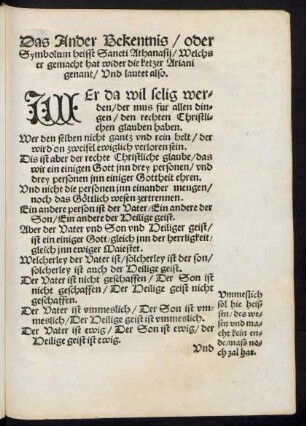 Das Ander Bekentnis / oder
Symbolum heisst Sancti Athanasij / Welchs
er gemacht hat wider die ketzer Ariani
genant / Und lautet also.
WEr da wil selig wer-
den / der mus für allen din-
gen / den rechten Christli-
chen glauben haben.
Wer den selben nicht gantz vnd rein helt / der
wird on zweifel ewiglich verloren sein.
Dis ist aber der rechte Christliche glaube / das
wir ein einigen Gott jnn drey personen / vnd
drey personen jnn einiger Gottheit ehren.
Und nicht die personen jnn einander mengen /
noch das Göttlich wesen zertrennen.
Ein andere person ist der Vater / Ein andere der
Son / Ein andere der Heilige geist.
Aber der Vater vnd Son vnd Heiliger geist /
ist ein einiger Gott / gleich jnn der herrligkeit /
gleich jnn ewiger Maiestet.
Welcherley der Vater ist / solcherley ist der son /
solcherley ist auch der Heilige geist.
Der Vater ist nicht geschaffen / Der Son ist
nicht geschaffen / Der Heilige geist nicht
geschaffen.
Der Vater ist vnmeslich / Der Son ist vn-
meslich / Der Heilige geist ist vnmeslich.
Der Vater ist ewig / Der Son ist ewig / der
Heilige geist ist ewig.
Vnmeslich
sol hie heis-
sen / des we-
sen vnd ma-
cht kein en-
de / mass no-
ch zal hat.
Und